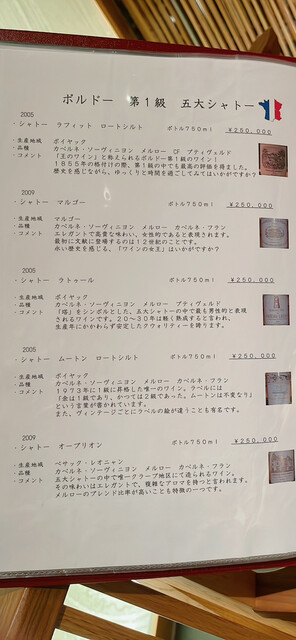 ボルドー 第1級 五大シャトー
2005
・シャトー ラフィット ロートシルト ボトル750ml ¥250,000
・生産地域 ポイヤック
・品種 カベルネ・ソーヴィニヨン メルロー CF プティヴェルド
・コメント 「王のワイン」と称えられるボルドー第1級のワイン！
1855年の格付けの際、第1級の中でも最高の評価を得ました。
歴史を感じながら、ゆっくりと時間を過ごしてみてはいかがですか？
2009
・シャトー マルゴー ボトル750ml ¥250,000
・生産地域 マルゴー
・品種 カベルネ・ソーヴィニヨン メルロー カベルネ・フラン
・コメント エレガントで高貴な味わい、女性的であると表現されます。
最初に文献に登場するのは12世紀のことです。
永い歴史を感じる、「ワインの女王」はいかがですか？
2005
・シャトー ラトゥール ボトル750ml ¥250,000
・生産地域 ポイヤック
・品種 カベルネ・ソーヴィニヨン メルロー プティヴェルド
・コメント 「塔」をシンボルとした、五大シャトーの中で最も男性的と表現
されるワインです。20～30年は軽く熟成すると言われ、
生産年にかかわらず安定したクウォリティーを誇ります。
2005
・シャトー ムートン ロートシルト ボトル750ml ¥250,000
・生産地域 ポイヤック
・品種 カベルネ・ソーヴィニヨン メルロー カベルネ・フラン
・コメント 1973年に1級に昇格した唯一のワイン。ラベルには
「余は1級であり、かつては2級であった。ムートンは不変なり」
という言葉が書かれています。
また、ヴィンテージごとにラベルの絵が違うことも有名です。
2009
・シャトー オーブリオン ボトル750ml ¥250,000
・生産地域 ペサック・レオニャン
・品種 カベルネ・ソーヴィニヨン メルロー カベルネ・フラン
・コメント 五大シャトーの中で唯一グラーブ地区にて造られるワイン。
その味わいはエレガントで、複雑なアロマを持つと言われます。
メルローのブレンド比率が高いことも特徴の一つです。